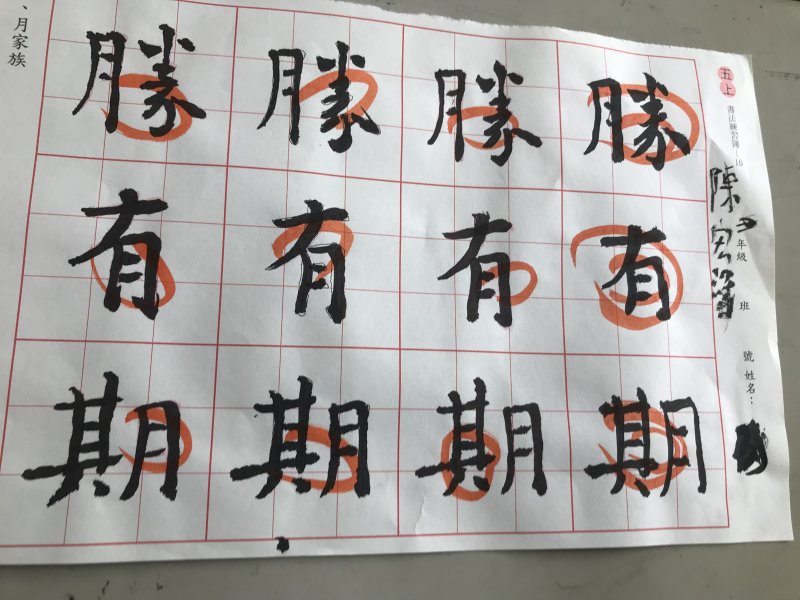 、月家族
勝勝勝勝
有有有有
期期期期
五上
書法練習簿 10
年級 班 號 姓名：
陳